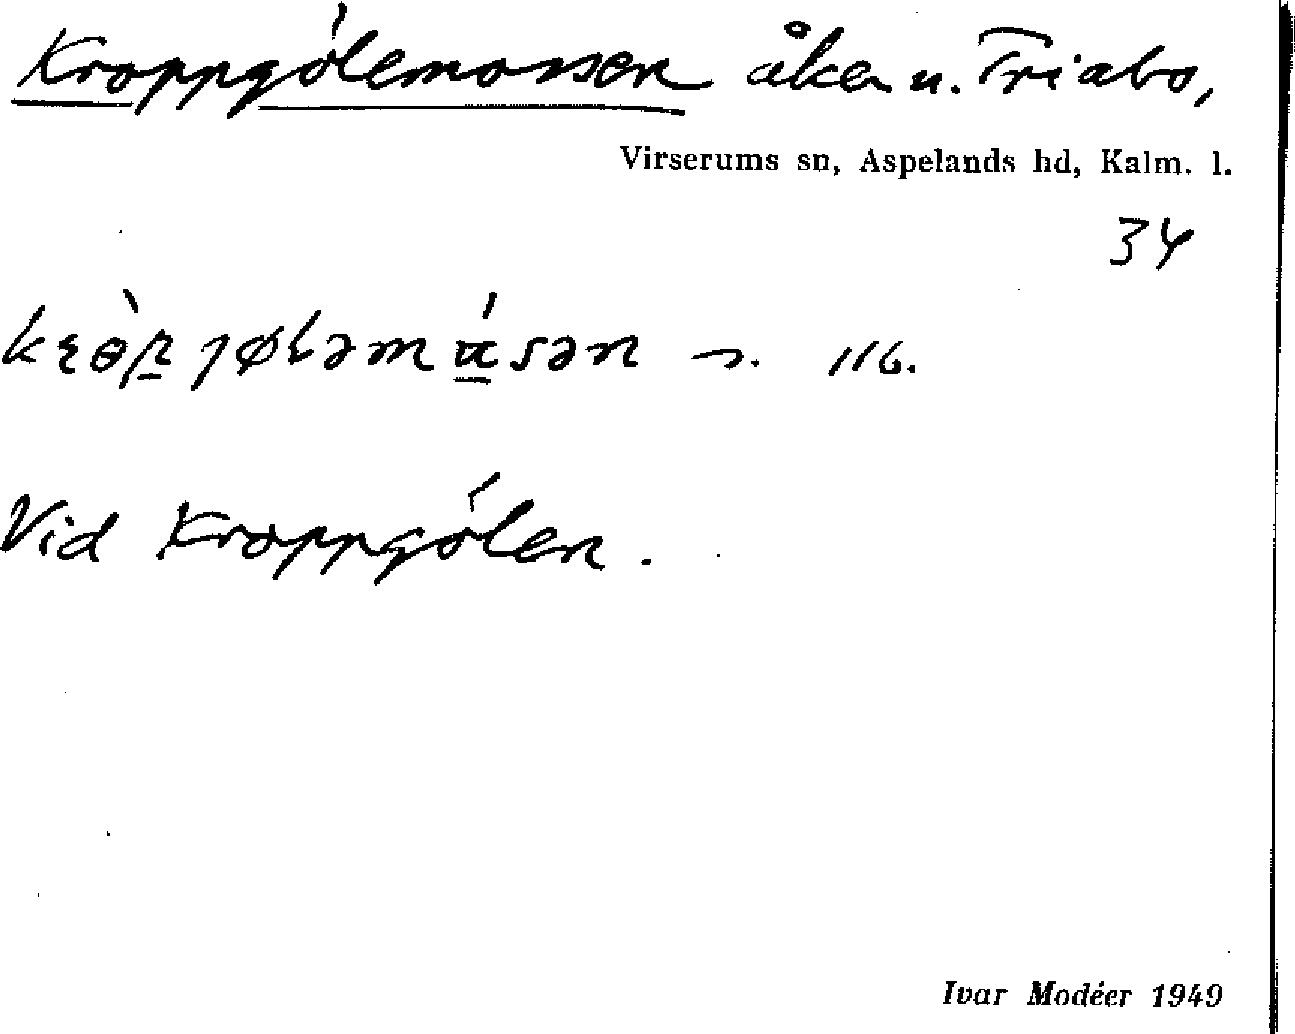 Kroppgólemossen åker u. Triabo,
Virserums sn, Aspelands hd, Kalm. l.
34
116.
Vid Kroppgólen.
Ivar Modéer 1949